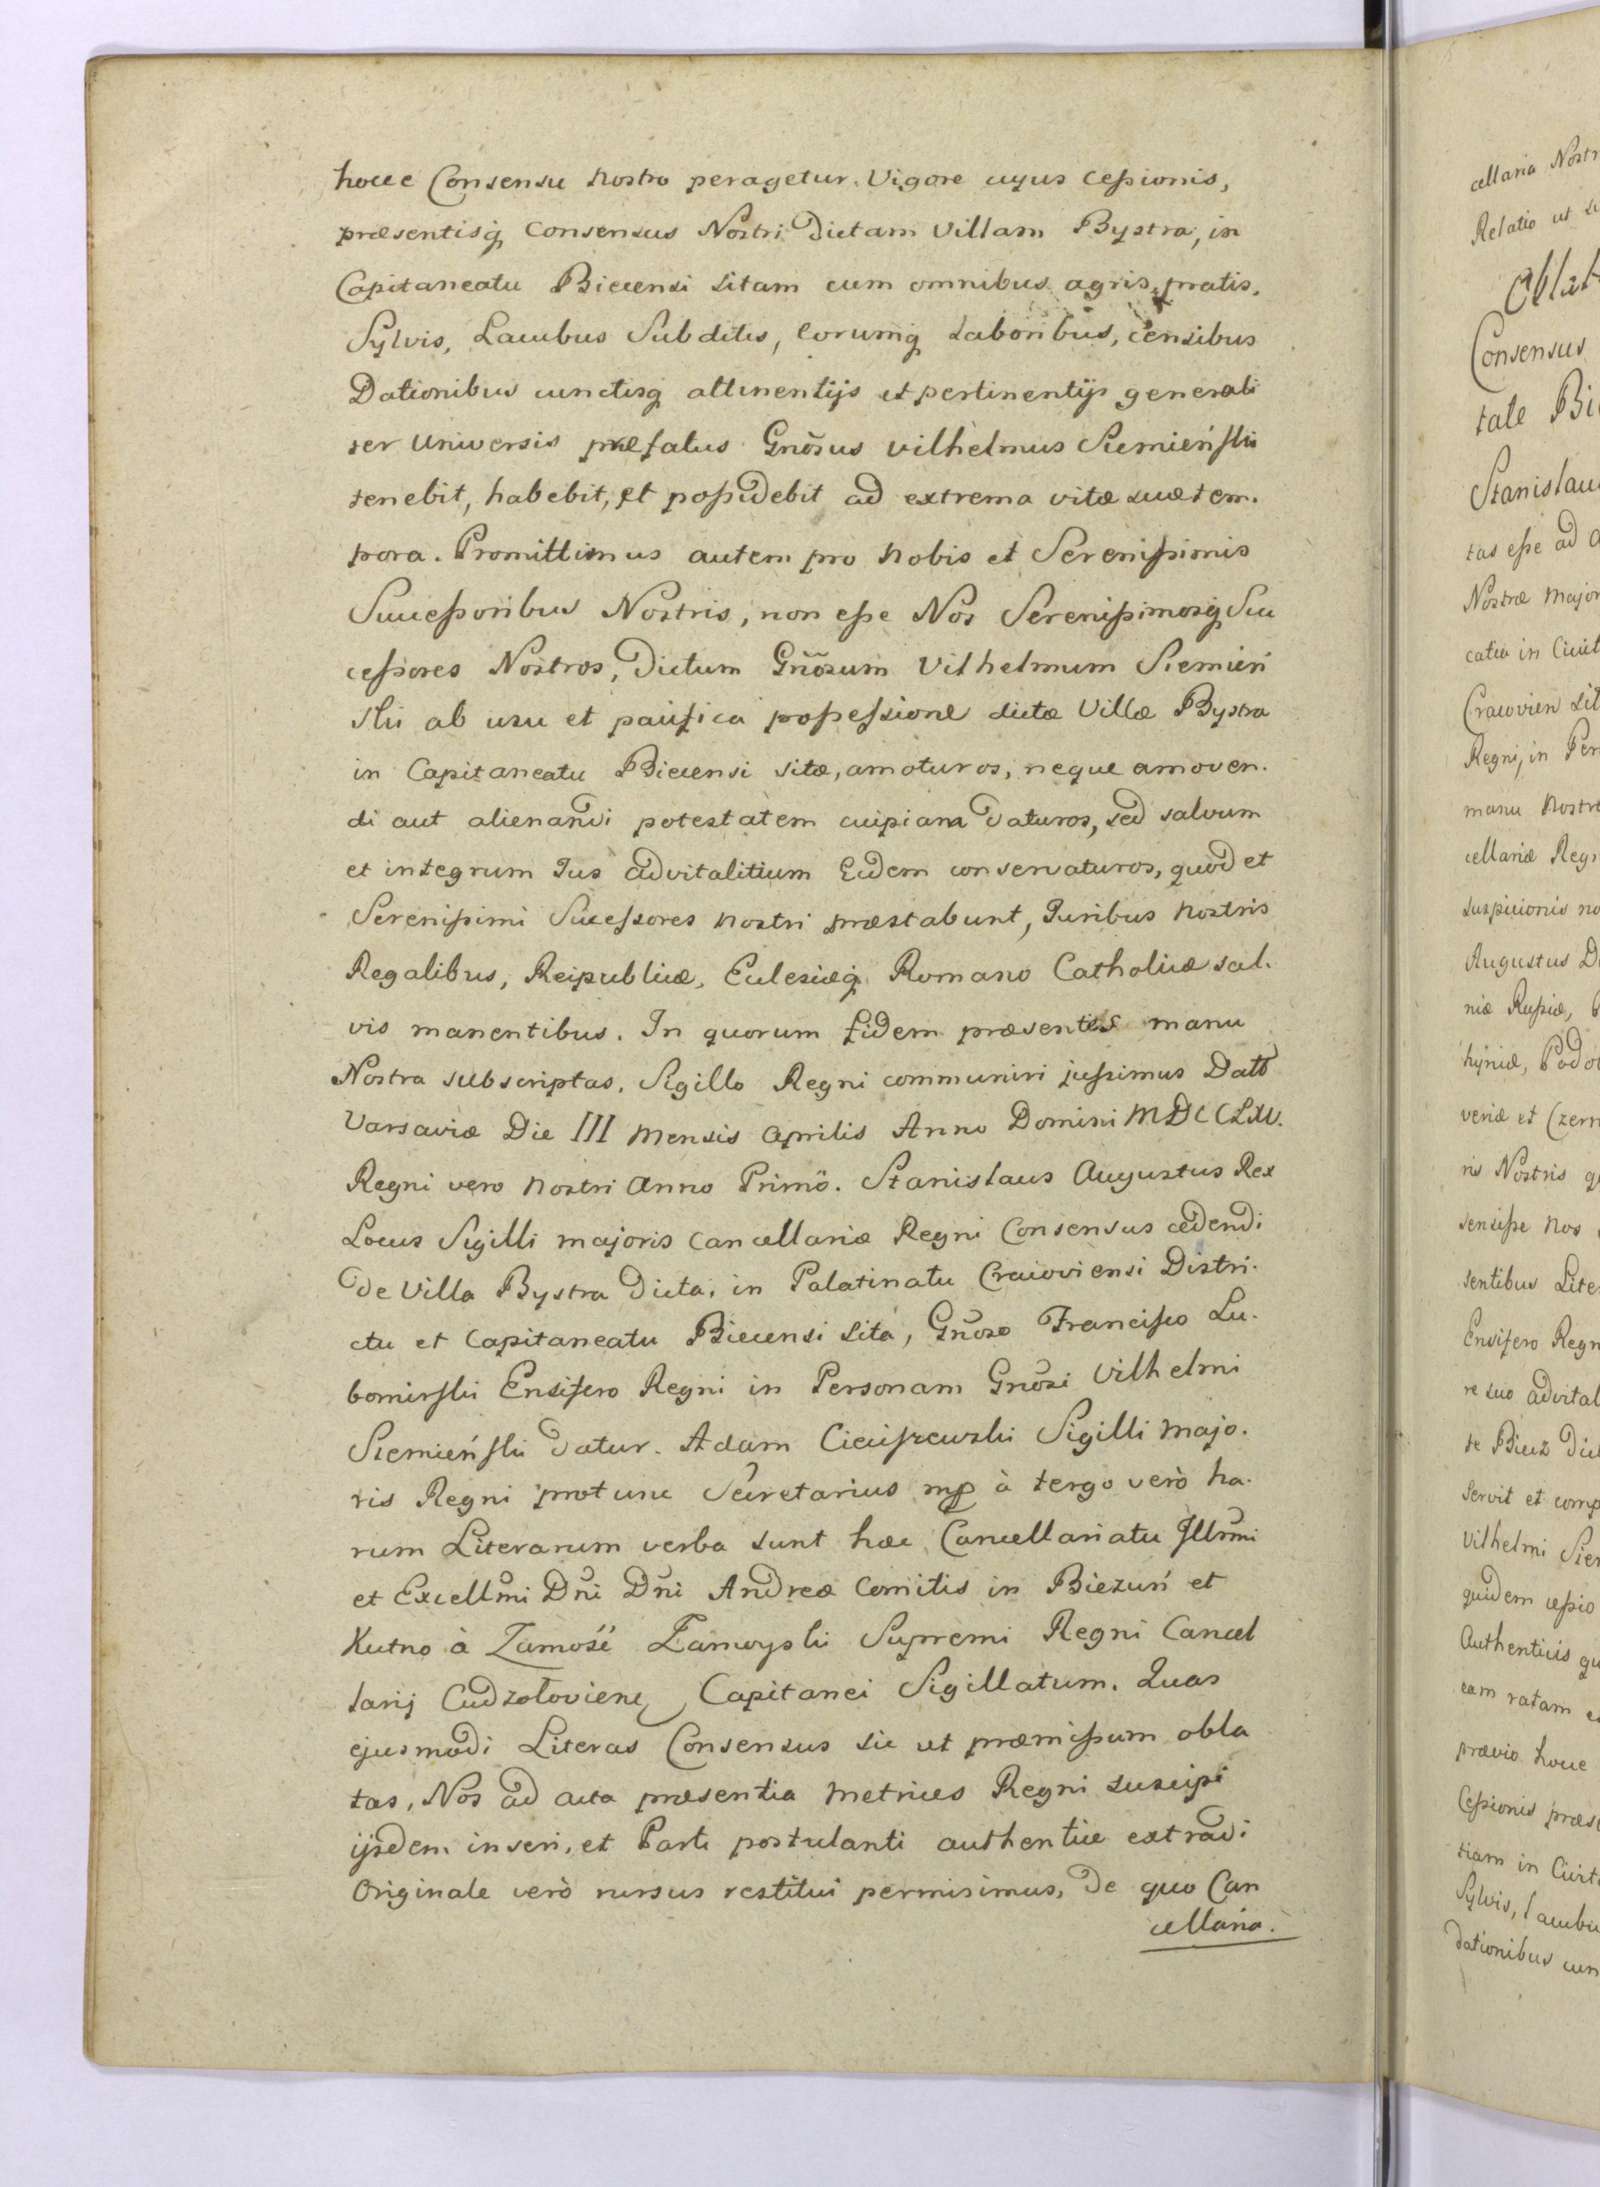 hocce Consensu Nostro peragetur. Vigore cujus cessionis,
præsentisq Consensus Nostri Dictam Villam Bystra, in
Capitaneatu Biecensi sitam cum omnibus agris, pratis,
Sylvis, Lacubus Subditis, eorumq laboribus, censibus
Dationibus cunctisq attinentijs et pertinentijs generali
ter Universis præfatus Gnõsus Vilhelmus Siemieński
tenebit, habebit, et possidebit ad extrema vitæ suæ tem.
pora. Promittimus autem pro Nobis et Serenissimis
Successoribus Nostris, non esse Nos Serenissimosq Suc
cessores Nostros, Dictum Gnõsum Vilhelmum Siemień
ski ab usu et pacifica possessione dictæ Villæ Bystra
in Capitaneatu Biecensi sitæ, amoturos, neque amoven.
di aut alienandi potestatem cuipiam daturos, sed salvum
et integrum Jus advitalitium Eidem conservaturos, quod et
Serenissimi Successores Nostri præstabunt, Juribus Nostris
Regalibus, Reipublicæ, Eclesiæq Romano Catholicæ sal.
vis manentibus. In quorum fidem præsentes manu
Nostra subscriptas, Sigillo Regni communiri jussimus Datt
Varsaviæ Die III Mensis Aprilis Anno Domini MDCCLXV.
Regni vero Nostri Anno Primo. Stanislaus Augustus Rex
Locus Sigilli majoris Cancellariæ Regni Consensus cedendi
de Villa Bystra Dicta, in Palatinatu Cracoviensi Distri.
ctu et Capitaneatu Biecensi sita, Gnõso Francisco Lu.
bomirski Ensifero Regni in Personam Gnõsi Vilhelmi
Siemieński datur. Adam Cieciszewski Sigilli Majo.
ris Regni protunc Secretarius mp à tergo verò ha.
rum Literarum verba sunt hæc Cancellariatu Jllrmi
et Excellmi Dni Dni Andreæ Comitis in Bieżuń et
Kutno à Zamość Zamoyski Supremi Regni Cancel
larij Capitanei Sigillatum. Quas
ejusmodi Literas Consensus sic ut præmissum obla
tas, Nos ad acta præsentia Metrices Regni suscipi
ijsdem inseri, et Parti postulanti authentice extradi
Originale verò rursus restitui permisimus, de quo Can
cellaria.
cellaria
Relatio ut
Consensus
tate
tas esse ad
Nostræ Major
Regni, in
manu Nostra
suspicionis no
Augustus
niæ Russiæ,
veriæ et
ris Nostris
sensisse Nos
sentibus
Ensifero Regn
re suo
Servit et
Vilhelmi
quidem cessio
Authenticis
eam ratam
prævio hocce
Cessionis
tiam in
Sylvis,
dationibus